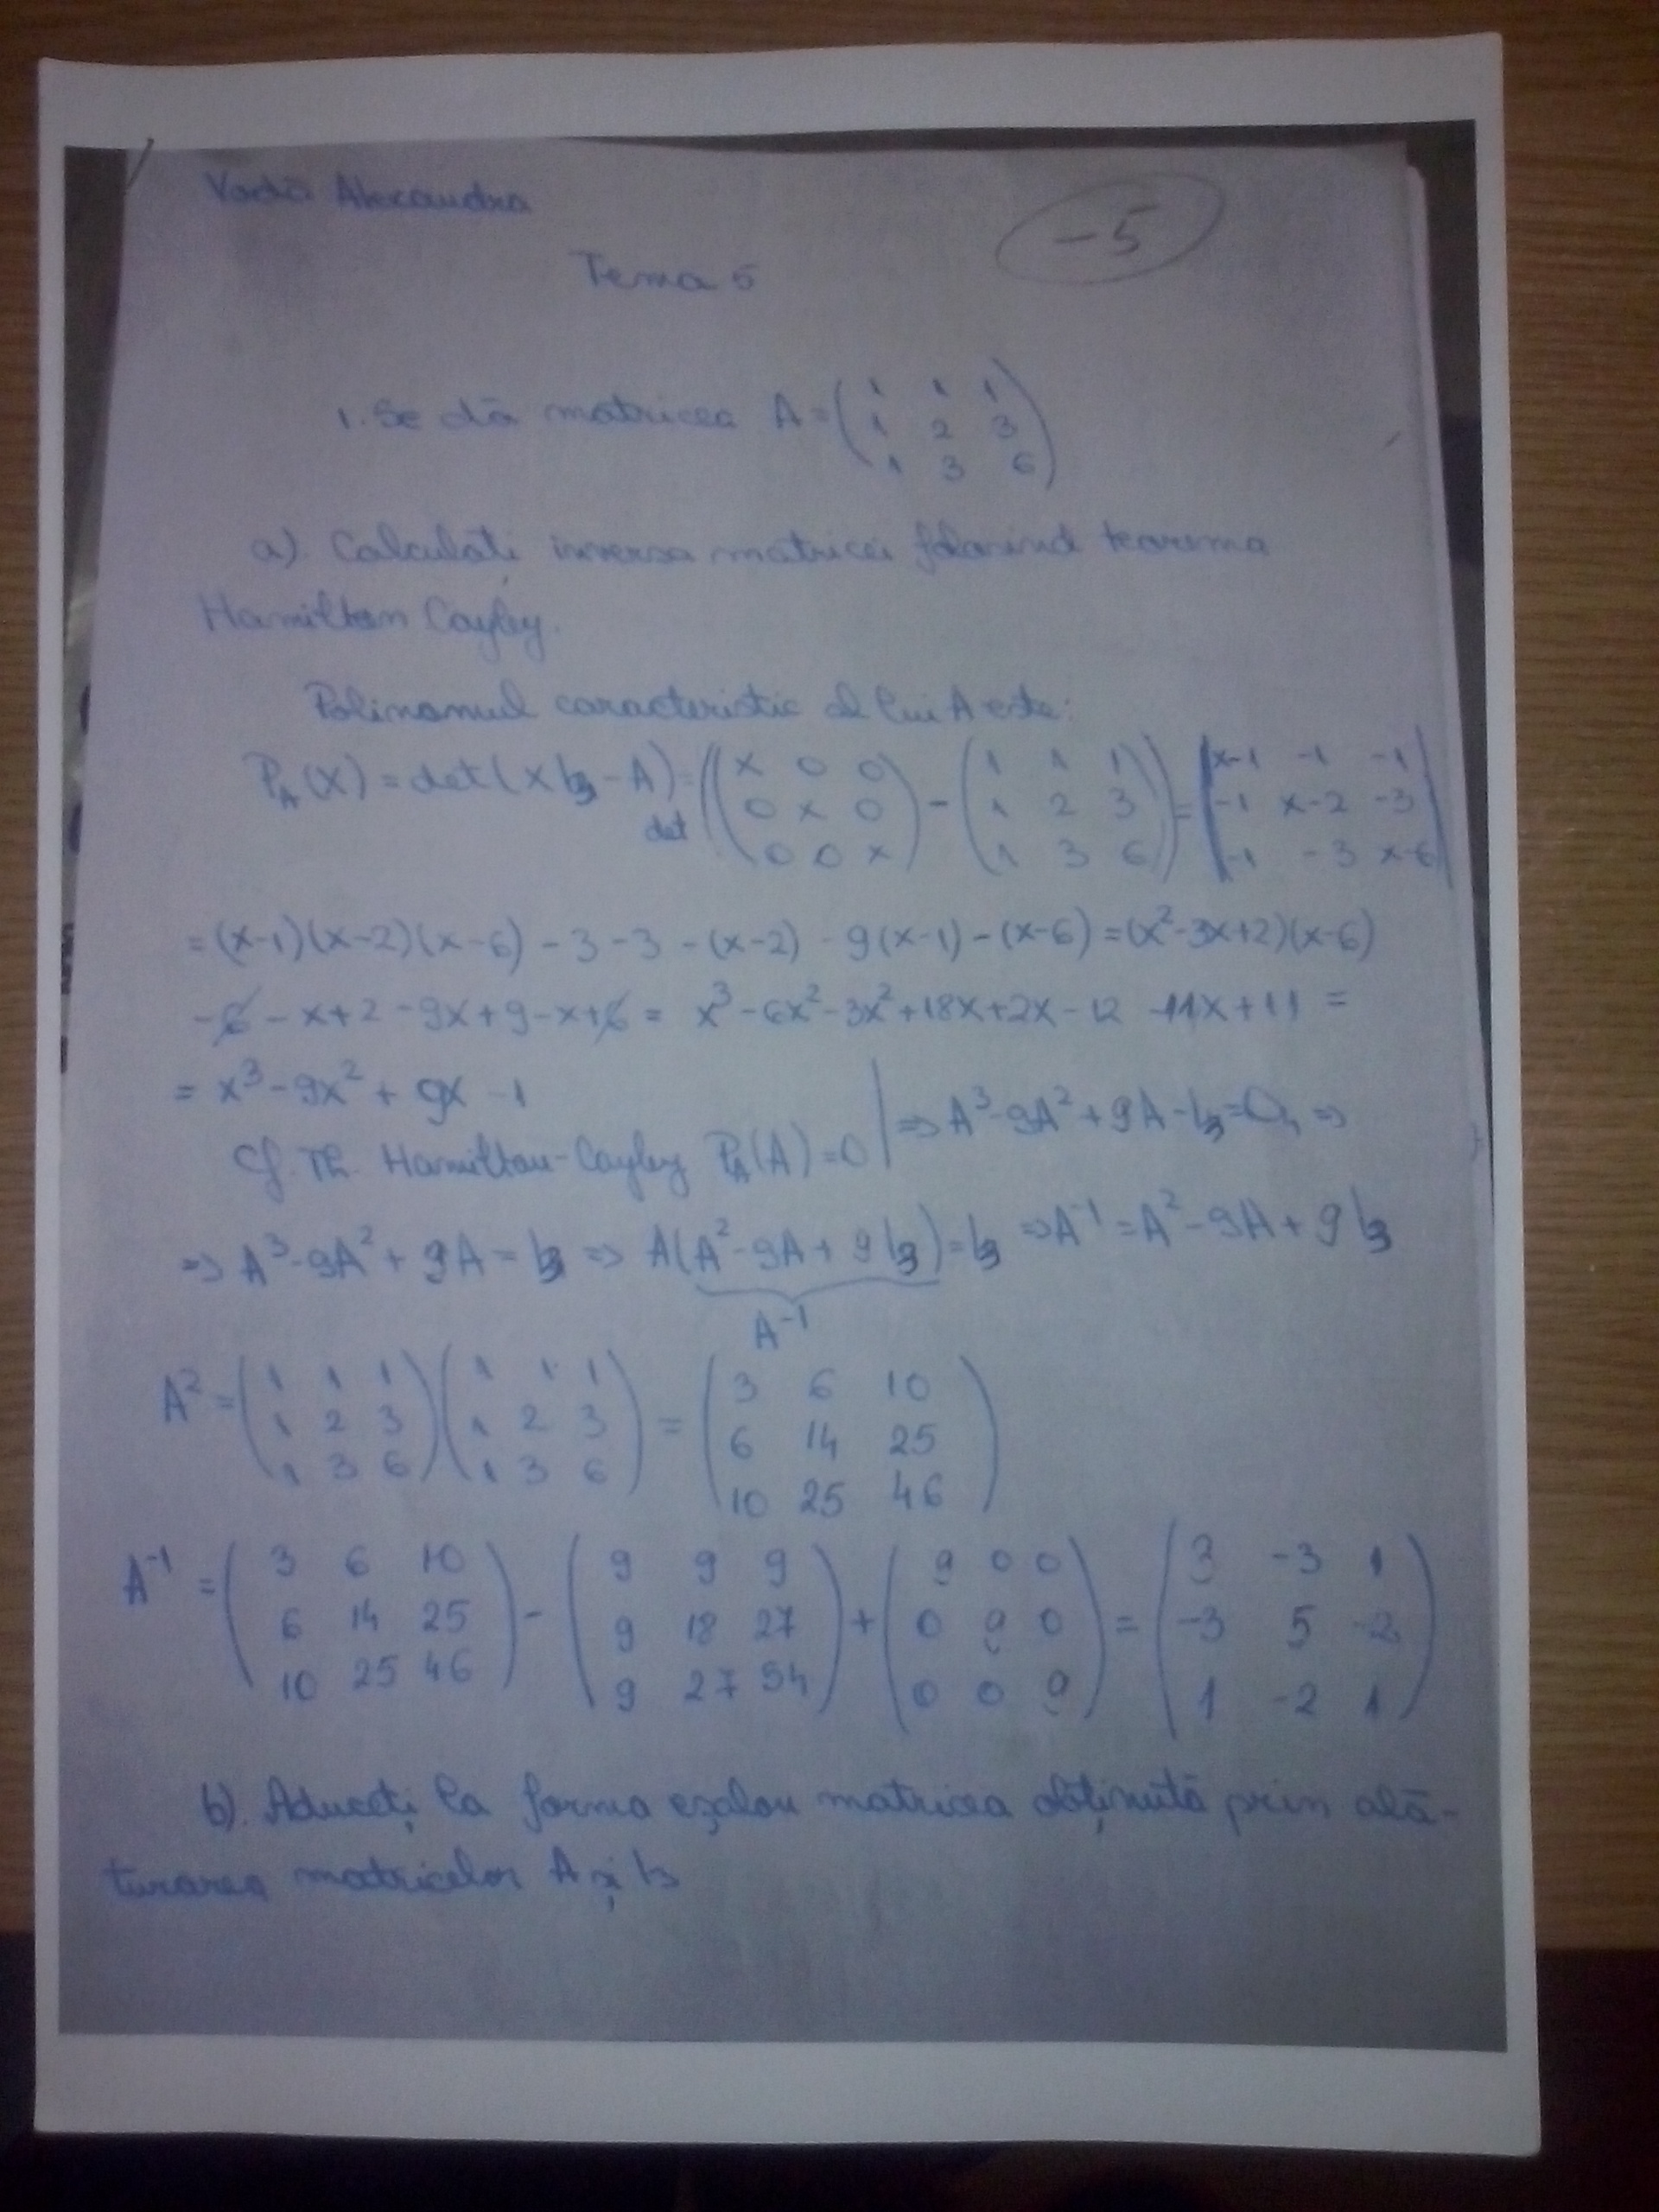 Vadă Alexandra
-5
Tema 5
1. Se dă matricea A = ( 1 1 1
1 2 3
1 3 6 )
a). Calculati inversa matricei folosind teorema
Hamilton Cayley.
Polinomul caracteristic al lui A este:
P_A(X) = det(XI3 - A) = det ( ( x 0 0 ) - ( 1 1 1 ) ) = | x-1 -1 -1 |
( 0 x 0 ) ( 1 2 3 ) | -1 x-2 -3 |
( 0 0 x ) ( 1 3 6 ) | -1 -3 x-6 |
= (x-1)(x-2)(x-6) - 3 - 3 - (x-2) - 9(x-1) - (x-6) = (x²-3x+2)(x-6)
- 6 - x + 2 - 9x + 9 - x + 6 = x³ - 6x² - 3x² + 18x + 2x - 12 - 11x + 11 =
= x³ - 9x² + 9x - 1
Cf. Th. Hamilton-Cayley P_A(A) = 0 | => A³ - 9A² + 9A - I3 = O, =>
=> A³ - 9A² + 9A = I3 => A(A² - 9A + 9I3) = I3 => A⁻¹ = A² - 9A + 9I3
A⁻¹
A² = ( 1 1 1 ) ( 1 1 1 ) = ( 3 6 10 )
( 1 2 3 ) ( 1 2 3 ) ( 6 14 25 )
( 1 3 6 ) ( 1 3 6 ) ( 10 25 46 )
A⁻¹ = ( 3 6 10 ) - ( 9 9 9 ) + ( 9 0 0 ) = ( 3 -3 1 )
( 6 14 25 ) ( 9 18 27 ) ( 0 9 0 ) ( -3 5 -2 )
( 10 25 46 ) ( 9 27 54 ) ( 0 0 9 ) ( 1 -2 1 )
b). Aduceți la forma eșalon matricea obținută prin ală-
turarea matricelor A și I3